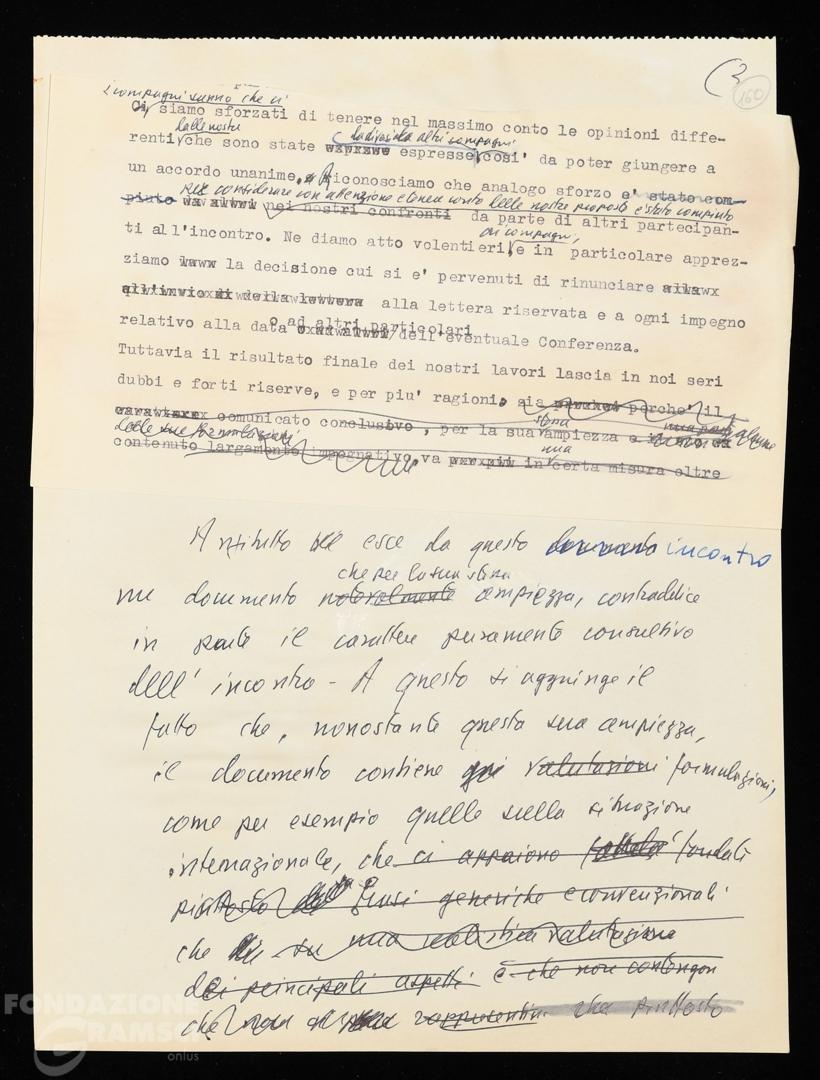 (3
160
i compagni sanno che ci
Ci siamo sforzati di tenere nel massimo conto le opinioni diffe-
dalle nostre
da diversi altri compagni
renti che sono state espresse, cosi' da poter giungere a
un accordo unanime. Riconosciamo che analogo sforzo e' stato com-
per considerare con attenzione e tener conto delle nostre proposte e' stato compiuto
piuto nei nostri confronti da parte di altri partecipan-
di compagni,
ti all'incontro. Ne diamo atto volentieri, e in particolare apprez-
ziamo la decisione cui si e' pervenuti di rinunciare
alla lettera riservata e a ogni impegno
o ad altri particolari
relativo alla data dell'eventuale Conferenza.
Tuttavia il risultato finale dei nostri lavori lascia in noi seri
dubbi e forti riserve, e per piu' ragioni, sia perche' il
stessa
comunicato conclusivo, per la sua ampiezza e
delle sue formulazioni
una
contenuto largamente impegnativo, va in certa misura oltre
Anzitutto esce da questo documento incontro
che per la sua stessa
un documento notevolmente ampiezza, contraddice
in parte il carattere puramente consultivo
dell'incontro - A questo si aggiunge il
fatto che, nonostante questa sua ampiezza,
il documento contiene valutazioni formulazioni,
come per esempio quelle sulla situazione
internazionale, che ci appaiono fondate
piuttosto frasi generiche e convenzionali
che su una realistica valutazione
dei principali aspetti e che non contengon
che non rappresentin che piuttosto
FONDAZIONE
GRAMSCI
onlus